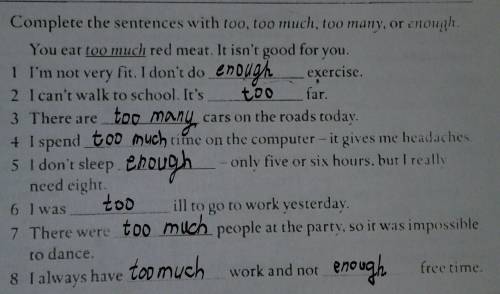 Complete the sentences with too, too much, too many, or enough.
You eat too much red meat. It isn't good for you.
1 I'm not very fit. I don't do enough exercise.
2 I can't walk to school. It's too far.
3 There are too many cars on the roads today.
4 I spend too much time on the computer – it gives me headaches.
5 I don't sleep enough – only five or six hours, but I really
need eight.
6 I was too ill to go to work yesterday.
7 There were too much people at the party, so it was impossible
to dance.
8 I always have too much work and not enough free time.